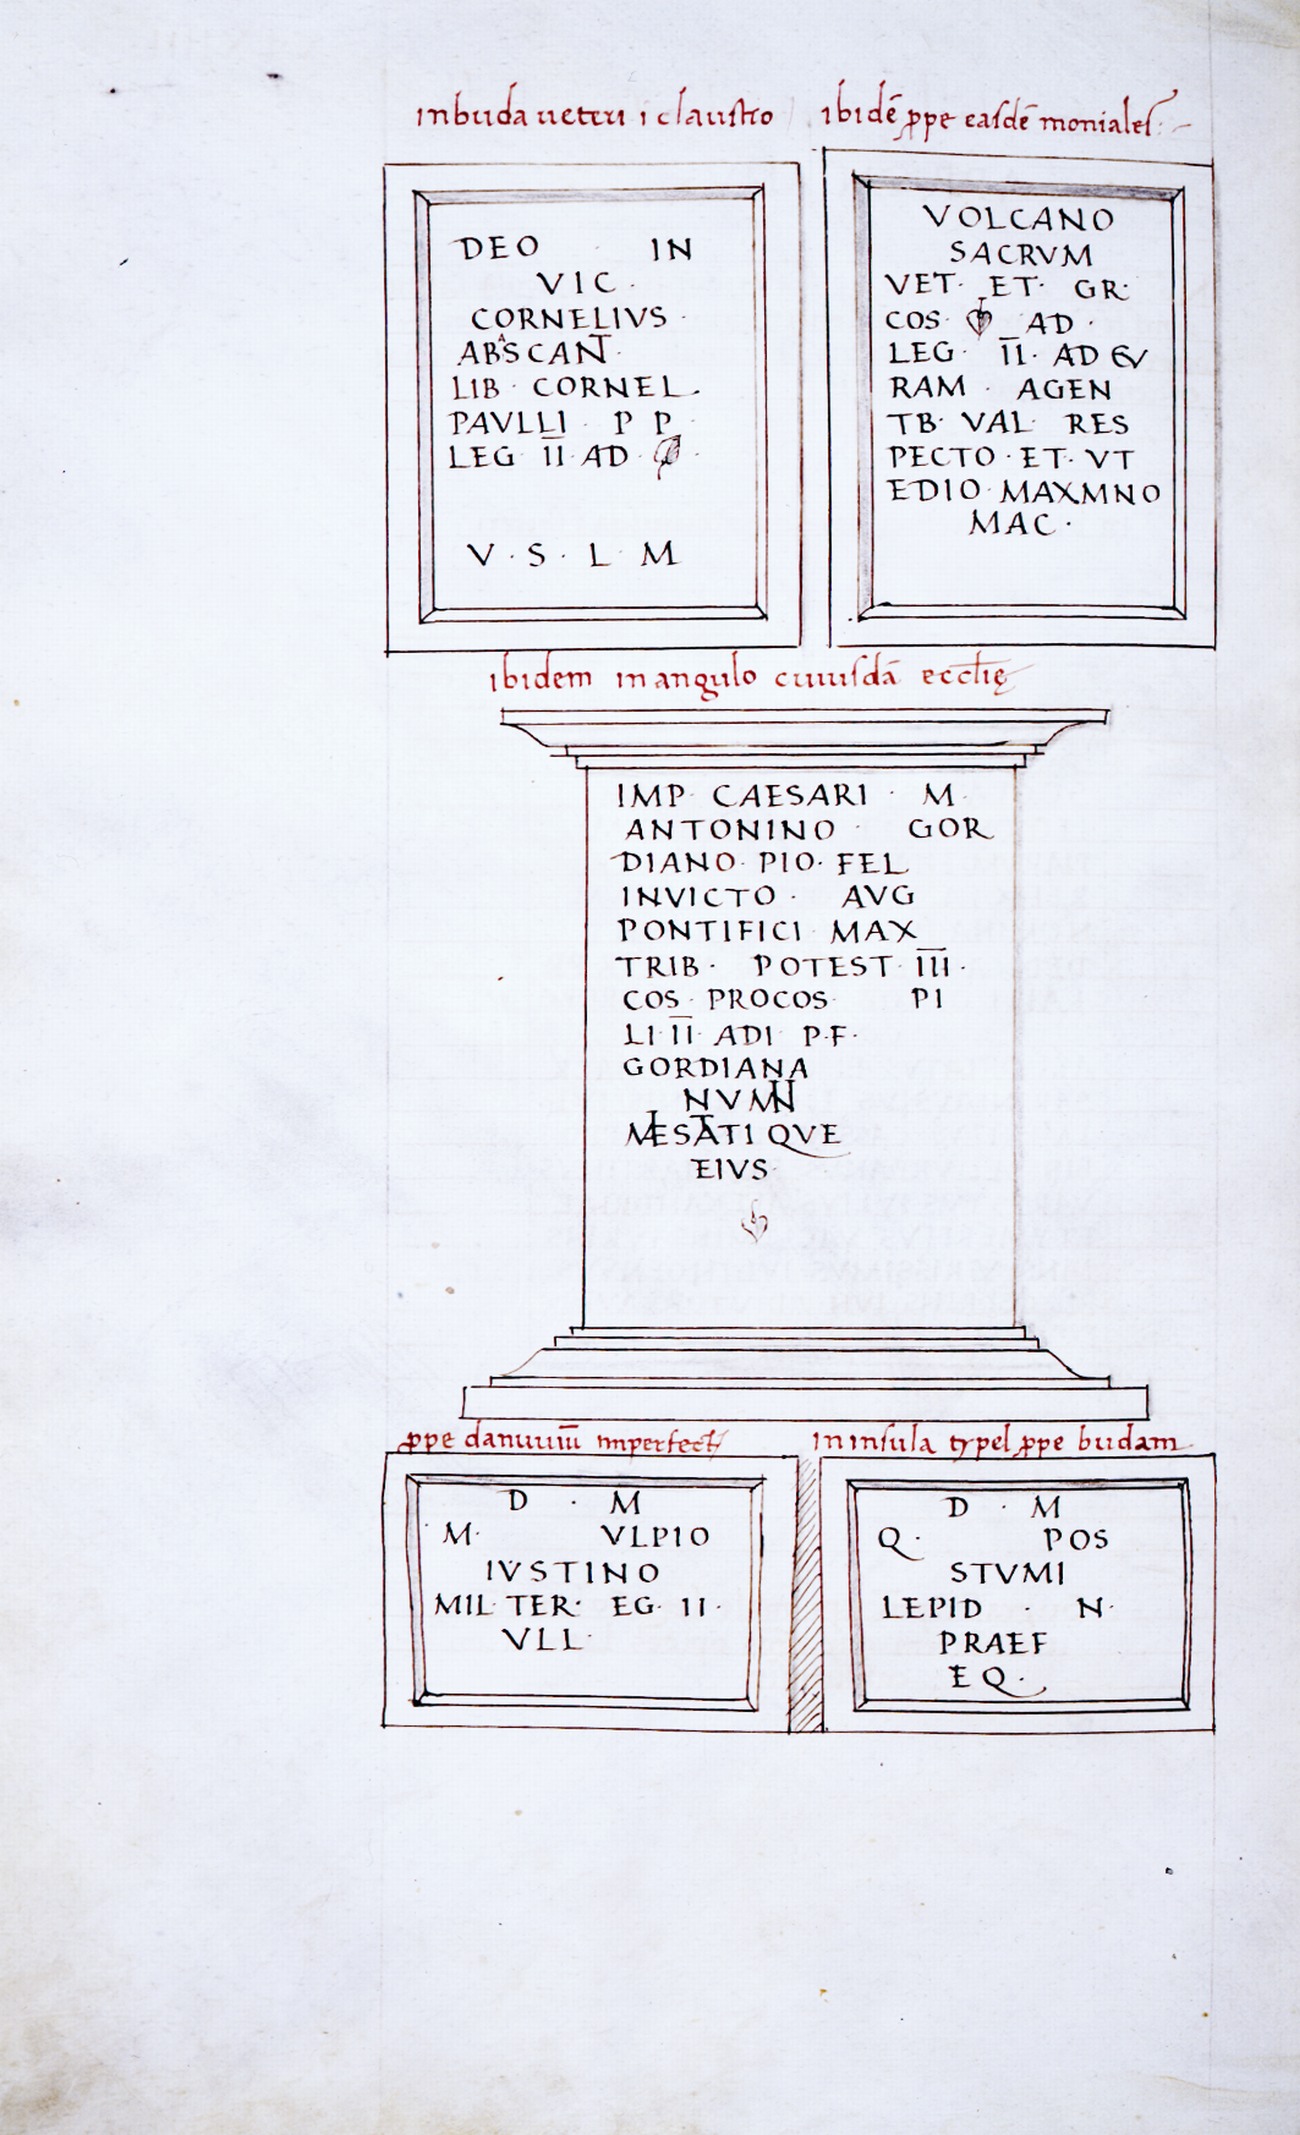 in buda ueteri i claustro
DEO · IN
VIC ·
CORNELIVS ·
ABSCANT ·
LIB · CORNEL ·
PAVLLI · P P ·
LEG · II · AD ·
V · S · L · M
ibidē ꝓpe easdē moniales
VOLCANO
SACRVM
VET · ET · GR ·
COS · AD ·
LEG · II · AD
RAM · AGEN
TB · VAL · RES
PECTO · ET · VT
EDIO · MAXMNO
MAC ·
ibidem in angulo cuiusdā eccl̄ię
IMP · CAESARI · M ·
ANTONINO · GOR
DIANO · PIO · FEL
INVICTO · AVG
PONTIFICI · MAX
TRIB · POTEST · III ·
COS · PROCOS · PI
LI · II · ADI · P · F ·
GORDIANA
MESATIQVE
EIVS
ꝓpe danuuiū imperfect
D · M
· M · VLPIO
IVSTINO
MIL · TER · EG · II ·
VLL ·
in insula typel ꝓpe budam
D · M
Q · POS
STVMI
LEPID · N ·
PRAEF
EQ ·